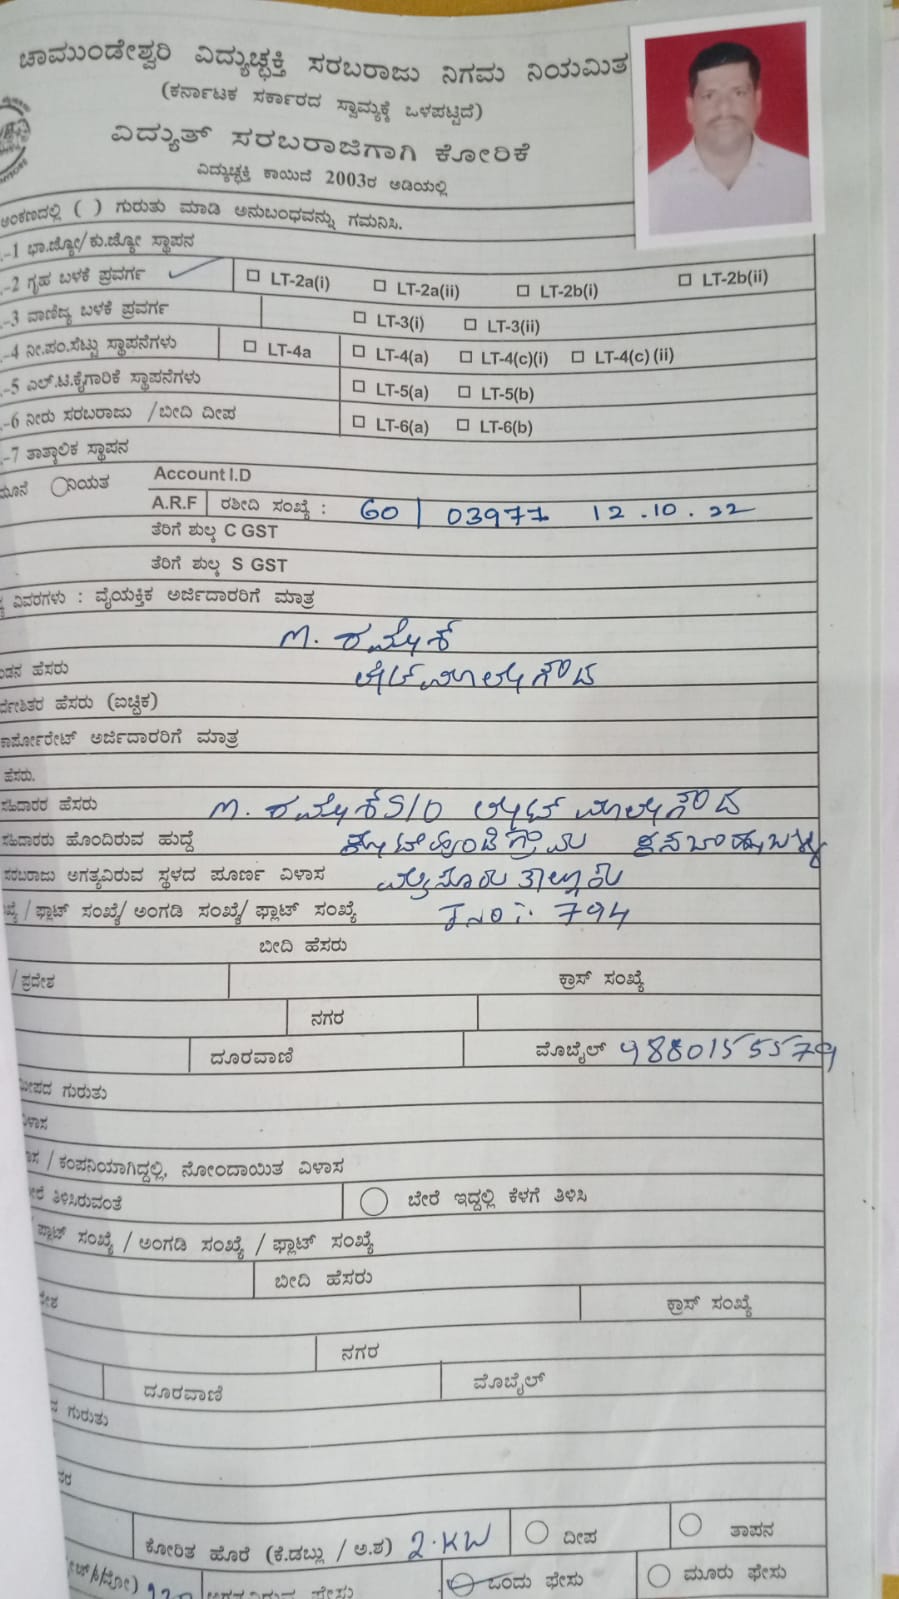 ಚಾಮುಂಡೇಶ್ವರಿ ವಿದ್ಯುಚ್ಛಕ್ತಿ ಸರಬರಾಜು ನಿಗಮ ನಿಯಮಿತ
(ಕರ್ನಾಟಕ ಸರ್ಕಾರದ ಸ್ವಾಮ್ಯಕ್ಕೆ ಒಳಪಟ್ಟಿದೆ)
ವಿದ್ಯುತ್ ಸರಬರಾಜಿಗಾಗಿ ಕೋರಿಕೆ
ವಿದ್ಯುಚ್ಛಕ್ತಿ ಕಾಯಿದೆ 2003ರ ಅಡಿಯಲ್ಲಿ
ಅಂಕಣದಲ್ಲಿ ( ) ಗುರುತು ಮಾಡಿ ಅನುಬಂಧವನ್ನು ಗಮನಿಸಿ.
-1 ಭಾ.ಜ್ಯೋ/ಕು.ಜ್ಯೋ ಸ್ಥಾಪನ
-2 ಗೃಹ ಬಳಕೆ ಪ್ರವರ್ಗ LT-2a(i) LT-2a(ii) LT-2b(i) LT-2b(ii)
-3 ವಾಣಿಜ್ಯ ಬಳಕೆ ಪ್ರವರ್ಗ LT-3(i) LT-3(ii)
-4 ನೀ.ಪಂ.ಸೆಟ್ಟು ಸ್ಥಾಪನೆಗಳು LT-4a LT-4(a) LT-4(c)(i) LT-4(c)(ii)
-5 ಎಲ್.ಟಿ.ಕೈಗಾರಿಕೆ ಸ್ಥಾಪನೆಗಳು LT-5(a) LT-5(b)
-6 ನೀರು ಸರಬರಾಜು /ಬೀದಿ ದೀಪ LT-6(a) LT-6(b)
-7 ತಾತ್ಕಾಲಿಕ ಸ್ಥಾಪನ
ನಿಯತ Account I.D
A.R.F ರಶೀದಿ ಸಂಖ್ಯೆ : 60 | 03977 12.10.22
ತೆರಿಗೆ ಶುಲ್ಕ C GST
ತೆರಿಗೆ ಶುಲ್ಕ S GST
ವಿವರಗಳು : ವೈಯಕ್ತಿಕ ಅರ್ಜಿದಾರರಿಗೆ ಮಾತ್ರ
M. ರಮೇಶ್
ಹೆಸರು ಲೇಟ್ ಮಾಲೇಗೌಡ
ಹೆಸರು (ಐಚ್ಛಿಕ)
ಕಾರ್ಪೋರೇಟ್ ಅರ್ಜಿದಾರರಿಗೆ ಮಾತ್ರ
ಹೆಸರು.
ಸಹಿದಾರರ ಹೆಸರು M. ರಮೇಶ್ S/O ಲೇಟ್ ಮಾಲೇಗೌಡ
ಸಹಿದಾರರು ಹೊಂದಿರುವ ಹುದ್ದೆ
ಸರಬರಾಜು ಅಗತ್ಯವಿರುವ ಸ್ಥಳದ ಪೂರ್ಣ ವಿಳಾಸ ಮೈಸೂರು ತಾಲ್ಲೂಕು
/ ಫ್ಲಾಟ್ ಸಂಖ್ಯೆ/ ಅಂಗಡಿ ಸಂಖ್ಯೆ/ ಫ್ಲಾಟ್ ಸಂಖ್ಯೆ 794
ಬೀದಿ ಹೆಸರು
/ ಪ್ರದೇಶ ಕ್ರಾಸ್ ಸಂಖ್ಯೆ
ನಗರ
ದೂರವಾಣಿ ಮೊಬೈಲ್ 9880155579
ಗುರುತು
/ ಕಂಪನಿಯಾಗಿದ್ದಲ್ಲಿ, ನೋಂದಾಯಿತ ವಿಳಾಸ
ತಿಳಿಸಿರುವಂತೆ ಬೇರೆ ಇದ್ದಲ್ಲಿ ಕೆಳಗೆ ತಿಳಿಸಿ
ಸಂಖ್ಯೆ / ಅಂಗಡಿ ಸಂಖ್ಯೆ / ಫ್ಲಾಟ್ ಸಂಖ್ಯೆ
ಬೀದಿ ಹೆಸರು
ಕ್ರಾಸ್ ಸಂಖ್ಯೆ
ನಗರ
ದೂರವಾಣಿ ಮೊಬೈಲ್
ಗುರುತು
ಕೋರಿತ ಹೊರೆ (ಕೆ.ಡಬ್ಲ್ಯು / ಅ.ಶ) 2.KW ದೀಪ ತಾಪನ
ಒಂದು ಫೇಸು ಮೂರು ಫೇಸು